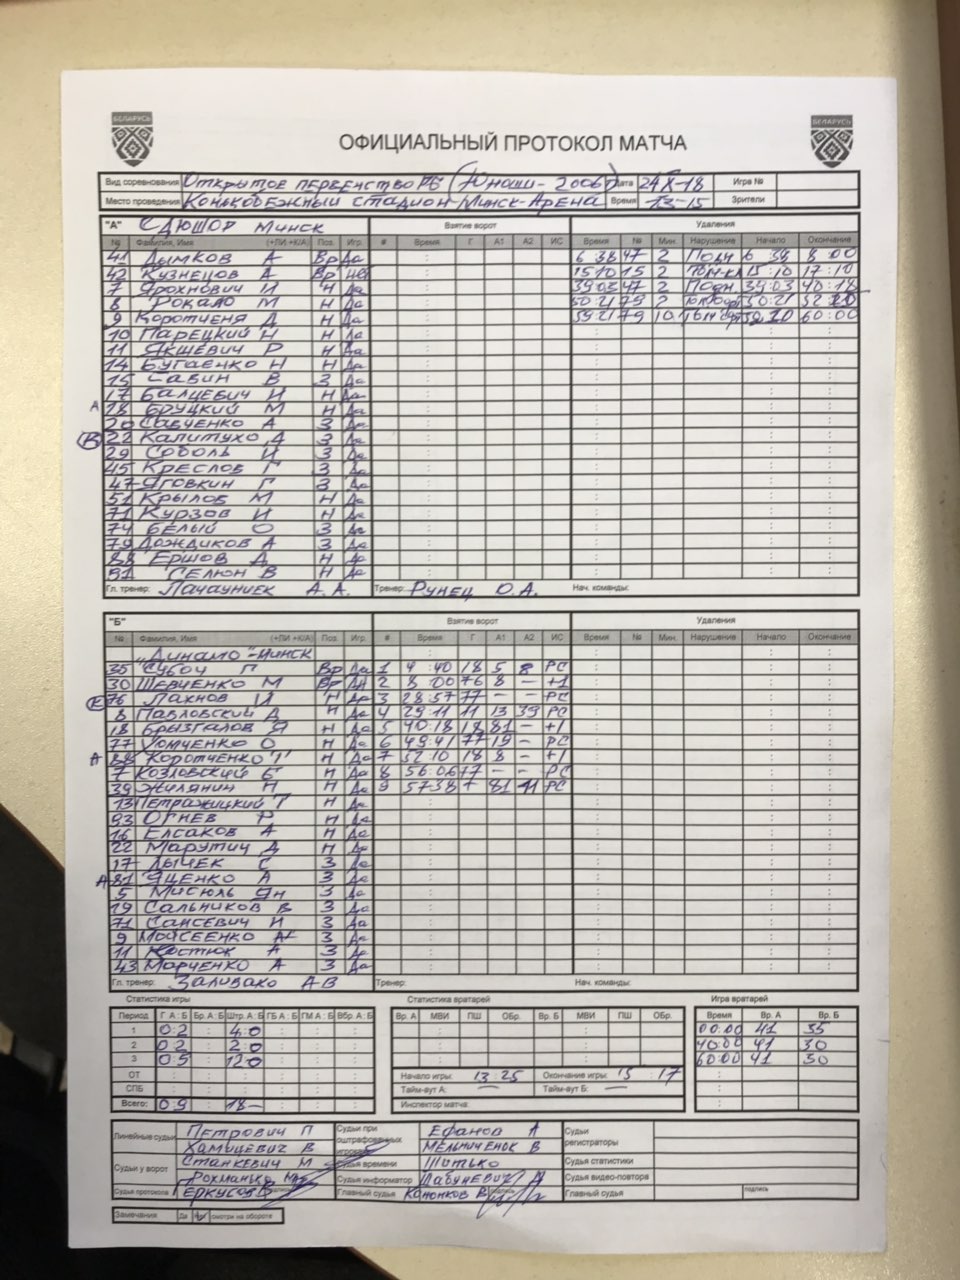 БЕЛАРУСЬ БЕЛАРУСЬ
ОФИЦИАЛЬНЫЙ ПРОТОКОЛ МАТЧА
Вид соревнования Открытое первенство РБ (Юноши-2006) Дата 24 X-18 Игра №
Место проведения Конькобежный стадион Минск-Арена Время 13-15 Зрители
"А" СДЮШОР Минск Взятие ворот Удаления
№ Фамилия, Имя (+ПИ +К/А) Поз. Игр. # Время Г А1 А2 ИС Время № Мин. Нарушение Начало Окончание
41 Дымков А Вр Да 6 38 47 2 Подн 6 38 8 00
42 Кузнецов А Вр 15 10 15 2 15 10 17:10
7 Ярохнович И Н Да 39 03 47 2 Подн 39:03 40:18
8 Рокало М Н Да 50 21 79 2 50:21 52 20
9 Коротченя Д Н Да 59 21 79 10 60:00
10 Парецкий Н Н Да
11 Якшевич Р Н Да
14 Бугаенко Н Н Да
15 Сабин В З Да
17 Балцевич И Н Да
А 18 Бруцкий М Н Да
20 Савченко А З Да
(В) 22 Калитухо Д З Да
29 Соболь И З Да
45 Креслов Г З Да
47 Яговкин Г З Да
51 Крылов М Н Да
71 Курзов И Н Да
74 Белый О З Да
79 Дождиков А З Да
88 Ершов Д Н Да
91 Селюн В Н Да
Гл. тренер: Лачауниек А. А. Тренер: Рунец О.А. Нач. команды:
"Б" Взятие ворот Удаления
№ Фамилия, Имя (+ПИ +К/А) Поз. Игр. # Время Г А1 А2 ИС Время № Мин. Нарушение Начало Окончание
"Динамо"-Минск
35 Субоч Г Вр Да 1 4:40 18 5 8 РС
30 Шевченко М Вр Да 2 8 00 76 8 - +1
(К) 76 Лахнов И Н Да 3 28:57 77 - - РС
8 Павловский Д Н Да 4 29 11 11 13 39 РС
18 Брызгалов Я Н Да 5 40:18 18 81 - +1
77 Хомченко О Н Да 6 49:41 77 19 - РС
А 88 Коротченко Г Н Да 7 52:10 18 8 - +1
7 Козловский Б Н Да 8 56:06 17 - - РС
39 Жилянин Н Н Да 9 57 38 7 81 11 РС
13 Петражицкий Г Н Да
93 Огнев Р Н Да
16 Елсаков А Н Да
22 Марутич Д Н Да
17 Лычек С З Да
А 81 Яценко А З Да
5 Мисюль Ян З Да
19 Сальников В З Да
71 Сансевич И З Да
9 Моисеенко З Да
11 Костюк А З Да
43 Марченко А З Да
Гл. тренер: Заливако АВ Тренер: Нач. команды:
Статистика игры Статистика вратарей Игра вратарей
Период Г А : Б Бр. А : Б Штр. А : Б ГБ А : Б ГМ А : Б Вбр. А : Б Вр. А МВИ ПШ Обр. Вр. Б МВИ ПШ Обр. Время Вр. А Вр. Б
1 0:2 4:0 00:00 41 35
2 0:2 2:0 40:00 41 30
3 0:5 12:0 60:00 41 30
ОТ Начало игры: 13:25 Окончание игры: 15:17
СПБ Тайм-аут А: — Тайм-аут Б: —
Всего: 0:9 18- Инспектор матча:
Линейные судьи Петрович П Судьи при оштрафованных игроках Ефанов А Судьи регистраторы
Хамицевич В Мельниченок В
Судьи у ворот Станкевич М Судья времени Шитько Судья статистики
Рохманько Судья информатор Лабуневич Д Судья видео-повтора
Судья протокола Еркусов В Главный судья Кононков В подпись Главный судья подпись
Замечания Да Нет смотри на обороте